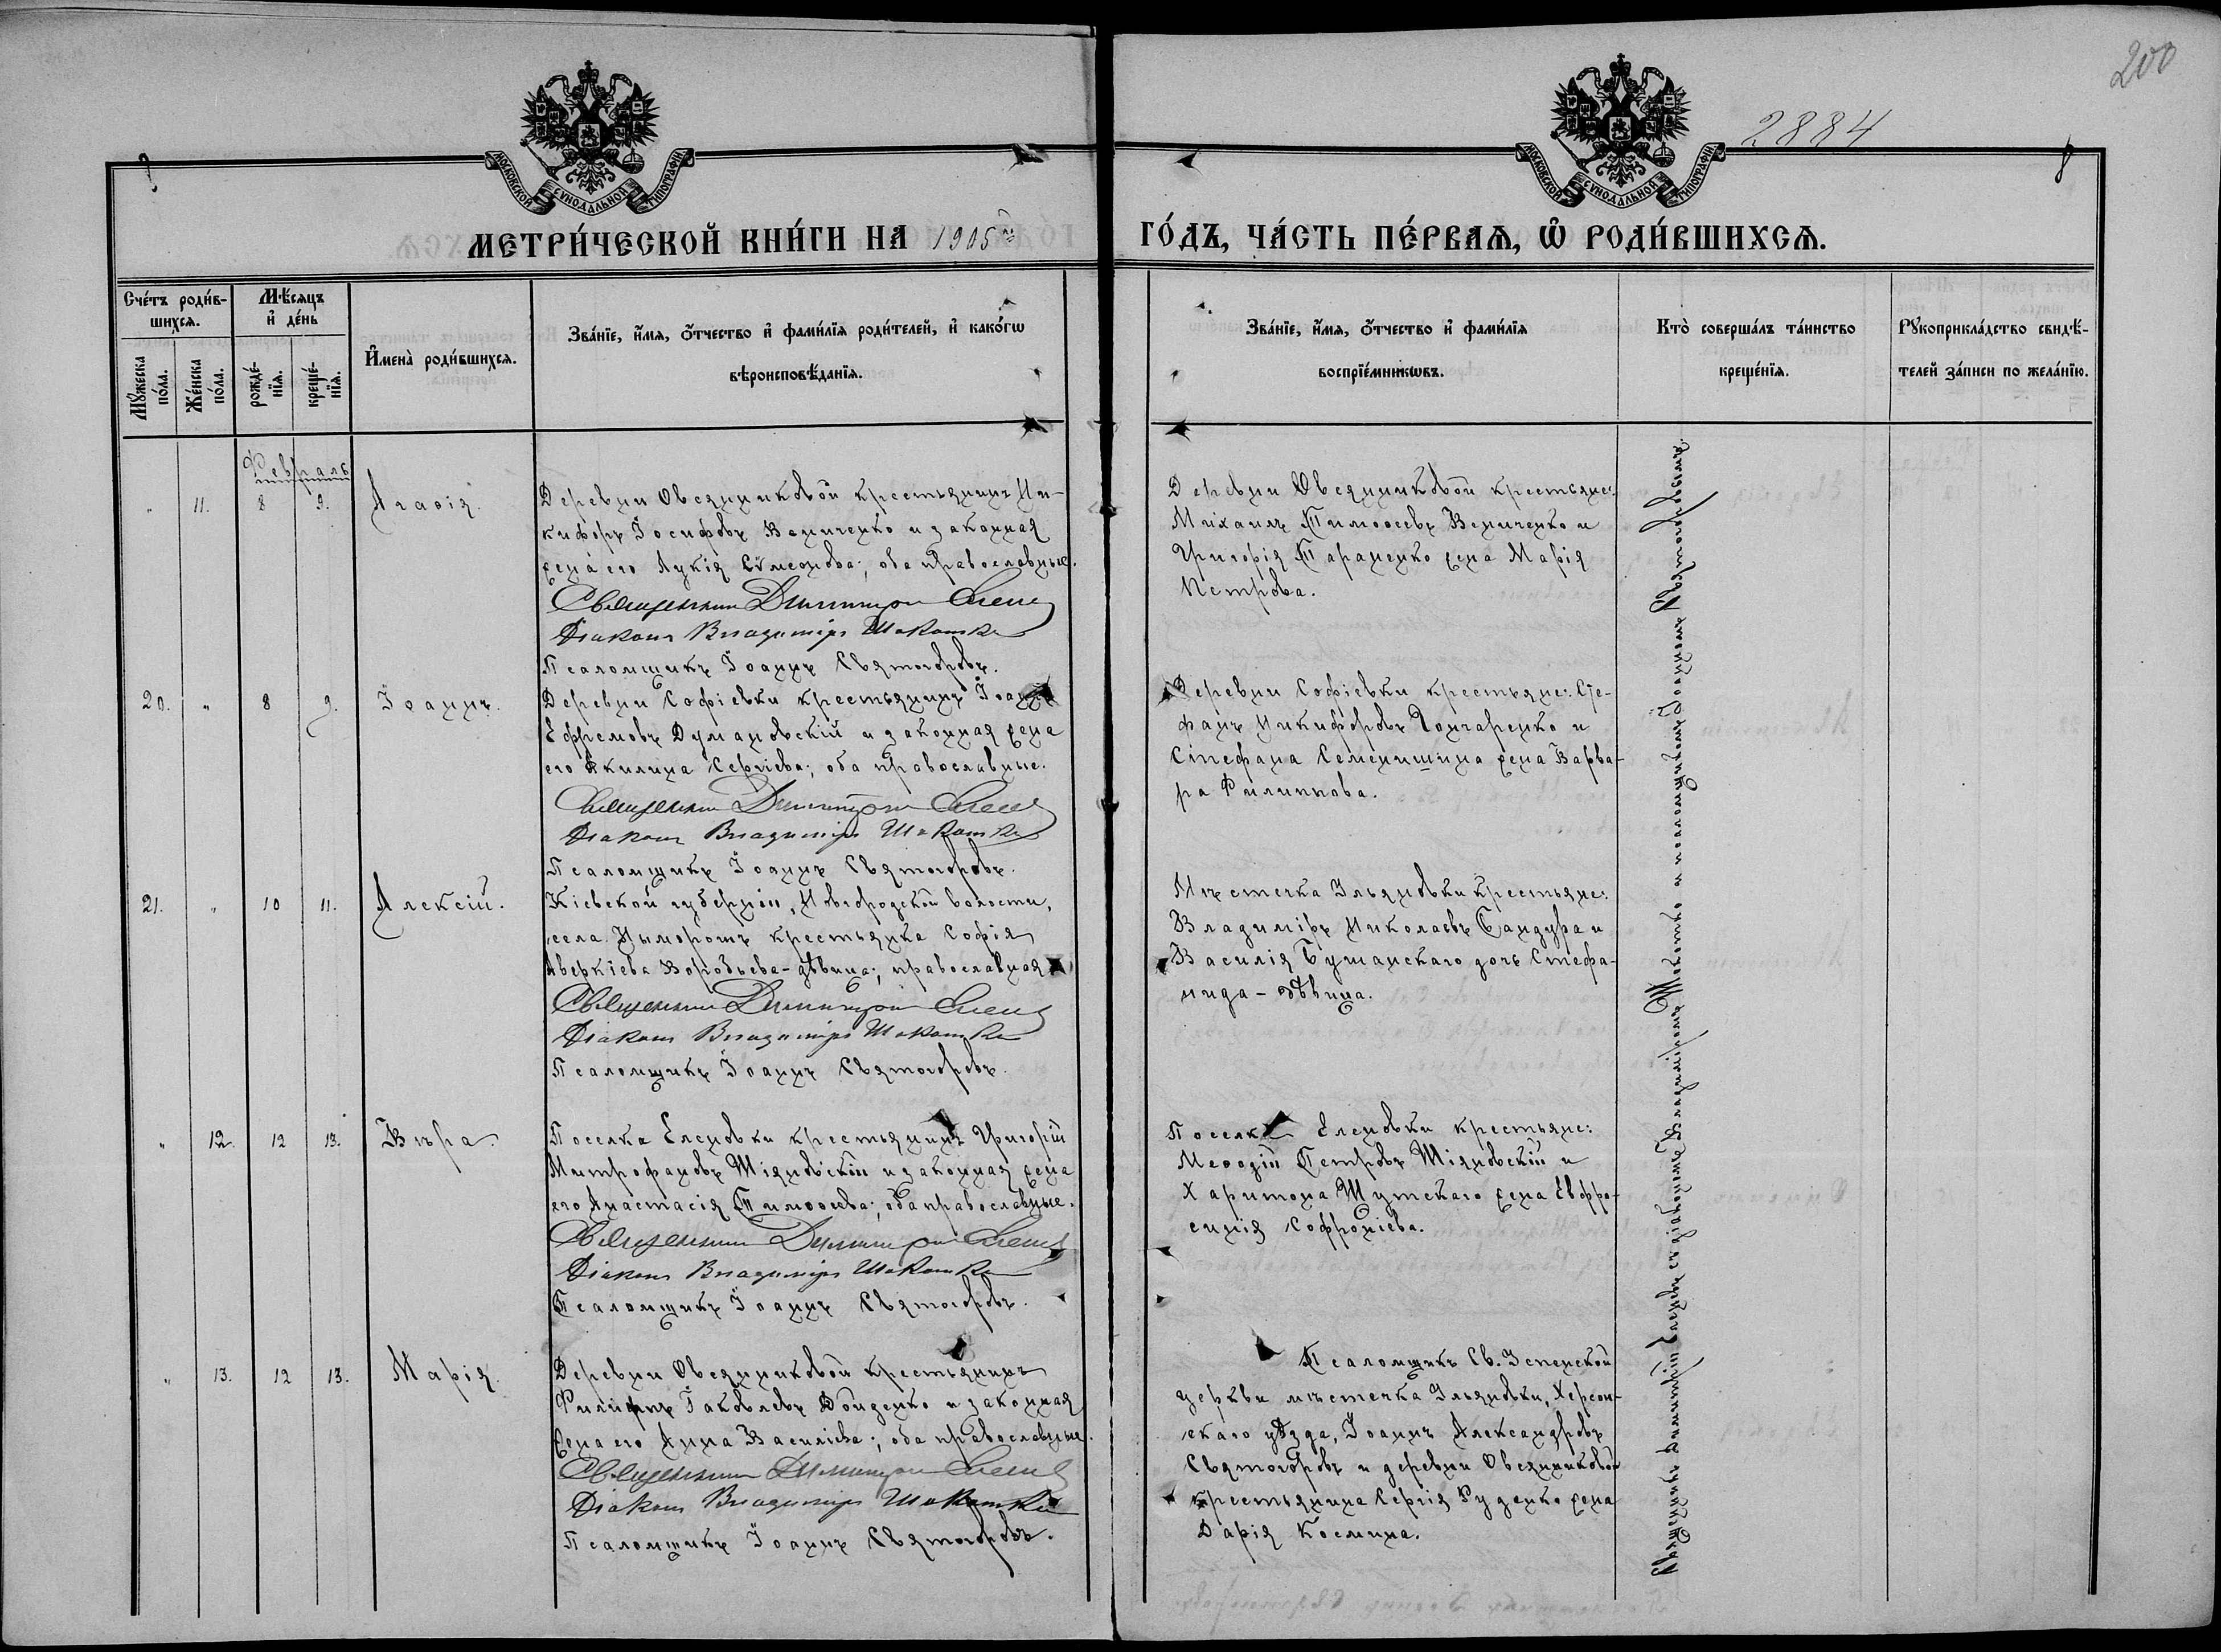 200
2884
МОСКОВСКОЙ СѴНОДАЛЬНОЙ ТИПОГРАФІИ
МОСКОВСКОЙ СѴНОДАЛЬНОЙ ТИПОГРАФІИ
МЕТРИ́ЧЕСКОЙ КНИ́ГИ НА 1905й ГО́ДЪ, ЧА́СТЬ ПЕ́РВАѦ, Ѡ РОДИ́ВШИХСѦ.
Сче́тъ роди́в-
шихсѧ.
Мꙋ́жеска по́ла.
Же́нска по́ла.
Мѣ́сяцъ и де́нь
рожде́нїѧ.
креще́нїѧ.
Имена̀ роди́вшихсѧ.
Зва́нїе, и́мѧ, о́тчество и фами́лїѧ роди́телей, и како́гѡ
вѣроисповѣ́данїѧ.
Зва́нїе, и́мѧ, о́тчество и фами́лїѧ
воспрїе́мникѡвъ.
Кто̀ соверша́лъ та́инство
креще́нїѧ.
Рꙋкоприкла́дство свидѣ́-
телей за́писи по жела́нїю.
Февраль
" 11. 8 9. Агаѳія.
Деревни Овсянниковой крестьянинъ Ни-
кифоръ Іосифовъ Величенко и законная
жена его Лукія Сѵмеонова; оба православные.
Священникъ Димитрій
Діаконъ Владиміръ Шокотко
Псаломщикъ Іоаннъ Святогоровъ.
Деревни Овсянниковой крестьяне:
Михаилъ Тимоѳеевъ Величенко и
Григорія Тараненко жена Марія
Петрова.
20. " 8 9. Іоаннъ.
Деревни Софіевки крестьянинъ Іоаннъ
Ефремовъ Думановскій и законная жена
его Акилина Сергіева; оба православные.
Священникъ Димитрій
Діаконъ Владиміръ Шокотко
Псаломщикъ Іоаннъ Святогоровъ.
Деревни Софіевки крестьяне: Сте-
фанъ Никифоровъ Гончаренко и
Стефана Семенишина жена Варва-
ра Филиппова.
21. " 10 11. Алексій.
Кіевской губерніи, Новгородской волости,
села крестьянка Софія
Аверкіева Воробьева-дѣвица; православная
Священникъ Димитрій
Діаконъ Владиміръ Шокотко
Псаломщикъ Іоаннъ Святогоровъ.
Мѣстечка Ульяновки крестьяне:
Владиміръ Николаевъ Бандура и
Василія Бушанскаго дочь Стефа-
нида-дѣвица.
" 12. 12 13. Вѣра.
Поселка Еленовки крестьянинъ Григорій
Митрофановъ Шіяновскій и законная жена
его Анастасія Тимоѳеева; оба православные.
Священникъ Димитрій
Діаконъ Владиміръ Шокотко
Псаломщикъ Іоаннъ Святогоровъ.
Поселка Еленовки крестьяне:
Меѳодій Петровъ Шіяновскій и
Харитона Шутскаго жена Евфро-
синія Софроніева.
" 13. 12 13. Марія.
Деревни Овсянниковой крестьянинъ
Филиппъ Іаковлевъ Дойденко и законная
жена его Анна Василіева; оба православные.
Священникъ Димитрій
Діаконъ Владиміръ Шокотко
Псаломщикъ Іоаннъ Святогоровъ.
Псаломщикъ Св. Успенской
церкви мѣстечка Ульяновки, Херсон-
скаго уѣзда, Іоаннъ Александровъ
Святогоровъ и деревни Овсянниковой
крестьянина Сергія Руденко жена
Дарія Космина.
Священникъ Димитрій съ діакономъ Владиміромъ Шокотко и псаломщикомъ Іоанномъ Святогоровымъ.